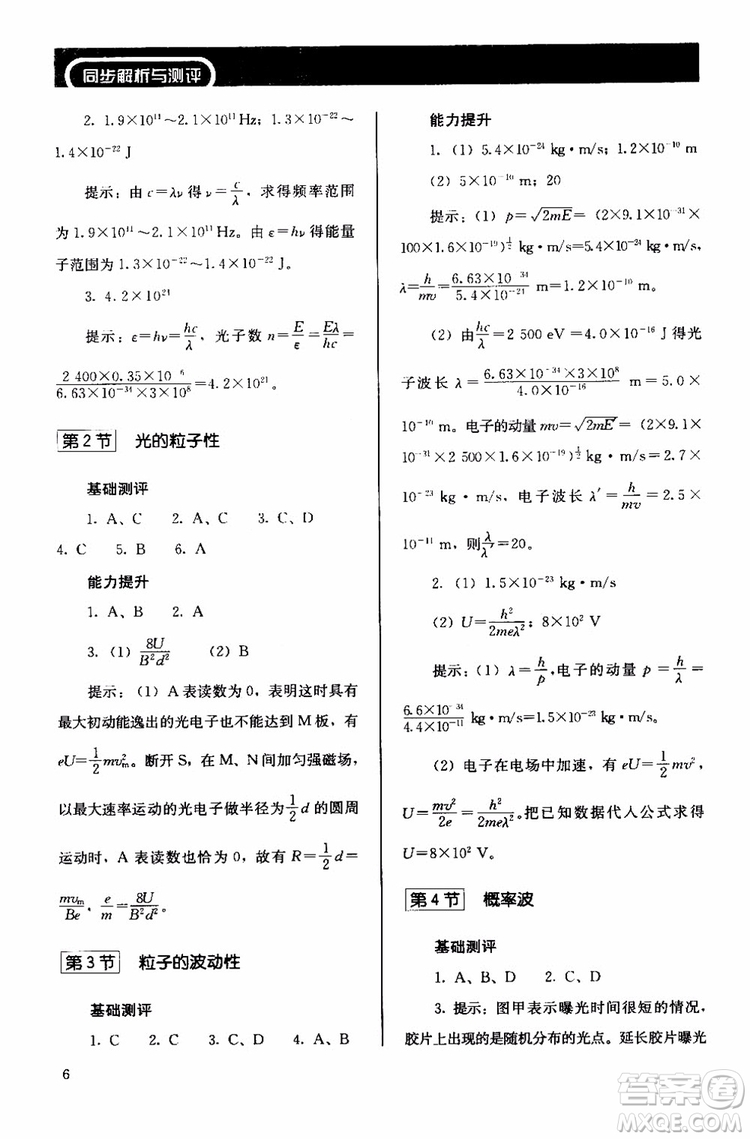 同步解析与测评
2. 1.9×10¹¹～2.1×10¹¹ Hz；1.3×10⁻²²～
1.4×10⁻²² J
提示：由 c=λν 得 ν=c/λ，求得频率范围
为 1.9×10¹¹～2.1×10¹¹ Hz。由 ε=hν 得能量
子范围为 1.3×10⁻²²～1.4×10⁻²² J。
3. 4.2×10²¹
提示：ε=hν=hc/λ，光子数 n=E/ε=Eλ/hc=
(2 400×0.35×10⁻⁶)/(6.63×10⁻³⁴×3×10⁸)=4.2×10²¹。
第2节 光的粒子性
基础测评
1. A、C 2. A、C 3. C、D
4. C 5. B 6. A
能力提升
1. A、B 2. A
3. （1）8U/B²d² （2）B
提示：（1）A 表读数为 0，表明这时具有
最大初动能逸出的光电子也不能达到 M 板，有
eU=½mv²ₘ。断开 S，在 M、N 间加匀强磁场，
以最大速率运动的光电子做半径为½d 的圆周
运动时，A 表读数也恰为 0，故有 R=½d=
mvₘ/Be，e/m=8U/B²d²。
第3节 粒子的波动性
基础测评
1. C 2. C 3. D 4. A、B
6
能力提升
1. （1）5.4×10⁻²⁴ kg·m/s；1.2×10⁻¹⁰ m
（2）5×10⁻¹⁰ m；20
提示：（1）p=√2mE=（2×9.1×10⁻³¹×
100×1.6×10⁻¹⁹）^½ kg·m/s=5.4×10⁻²⁴ kg·m/s，
λ=h/mv=(6.63×10⁻³⁴)/(5.4×10⁻²⁴) m=1.2×10⁻¹⁰ m。
（2）由hc/λ=2 500 eV=4.0×10⁻¹⁶ J 得光
子波长 λ=(6.63×10⁻³⁴×3×10⁸)/(4.0×10⁻¹⁶) m=5.0×
10⁻¹⁰ m。电子的动量 mv=√2mE=（2×9.1×
10⁻³¹×2 500×1.6×10⁻¹⁹）^½ kg·m/s=2.7×
10⁻²³ kg·m/s，电子波长 λ′=h/mv=2.5×
10⁻¹¹ m，则λ/λ′=20。
2. （1）1.5×10⁻²³ kg·m/s
（2）U=h²/2meλ²；8×10² V
提示：（1）λ=h/p，电子的动量 p=h/λ=
(6.6×10⁻³⁴)/(4.4×10⁻¹¹) kg·m/s=1.5×10⁻²³ kg·m/s。
（2）电子在电场中加速，有 eU=½mv²，
U=mv²/2e=h²/2meλ²。把已知数据代人公式求得
U=8×10² V。
第4节 概率波
基础测评
1. A、B、D 2. C、D
3. 提示：图甲表示曝光时间很短的情况，
胶片上出现的是随机分布的光点。延长胶片曝光
答案圈
MXQE.COM